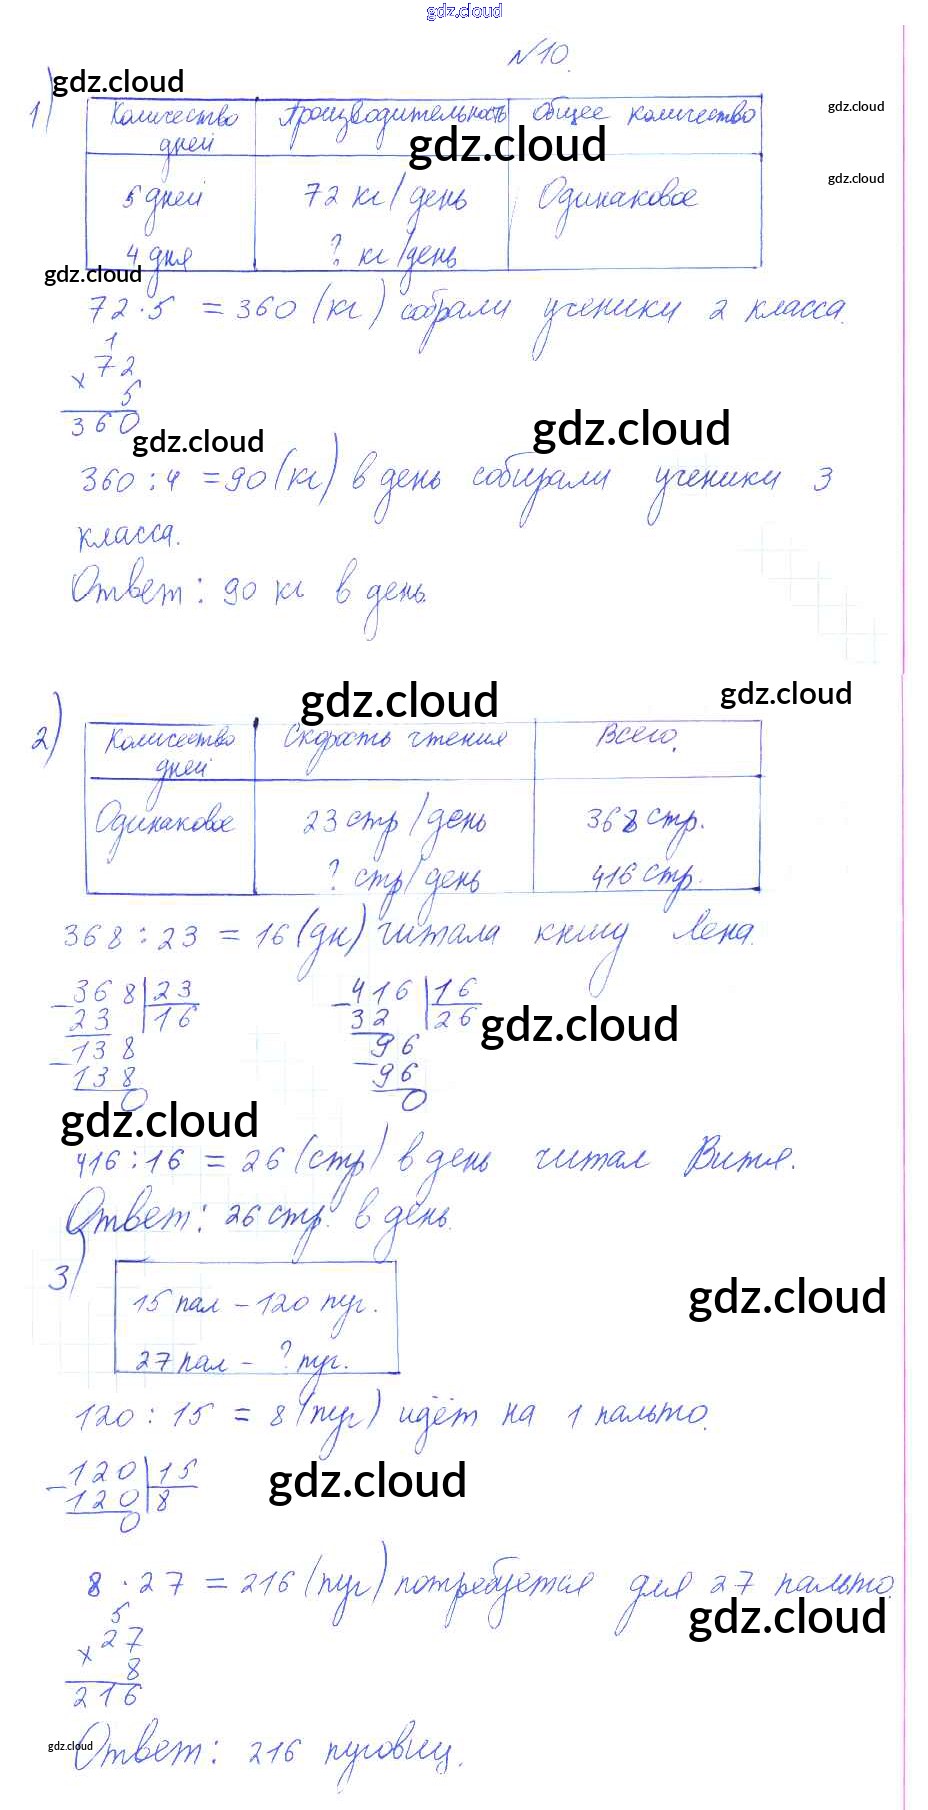 gdz.cloud
№10.
gdz.cloud
1) Количество Производительность Общее количество gdz.cloud
дней gdz.cloud
5 дней 72 кг/день Одинаковое gdz.cloud
4 дня ? кг/день
gdz.cloud
72 · 5 = 360 (кг) собрали ученики 2 класса.
1
× 72
5
360
gdz.cloud gdz.cloud
360 : 4 = 90 (кг) в день собирали ученики 3
класса.
Ответ: 90 кг в день.
gdz.cloud gdz.cloud
2) Количество Скорость чтения Всего.
дней
Одинаковое 23 стр/день 368 стр.
? стр/день 416 стр.
368 : 23 = 16 (дн) читала книгу Лена.
– 368 | 23 – 416 | 16
23 | 16 32 | 26 gdz.cloud
– 138 – 96
138 96
0 0
gdz.cloud
416 : 16 = 26 (стр) в день читал Витя.
Ответ: 26 стр. в день.
3)
15 пал – 120 пуг. gdz.cloud
27 пал – ? пуг.
120 : 15 = 8 (пуг) идёт на 1 пальто.
– 120 | 15 gdz.cloud
120 | 8
0
8 · 27 = 216 (пуг) потребуется для 27 пальто.
5 gdz.cloud
× 27
8
216
gdz.cloud Ответ: 216 пуговиц.